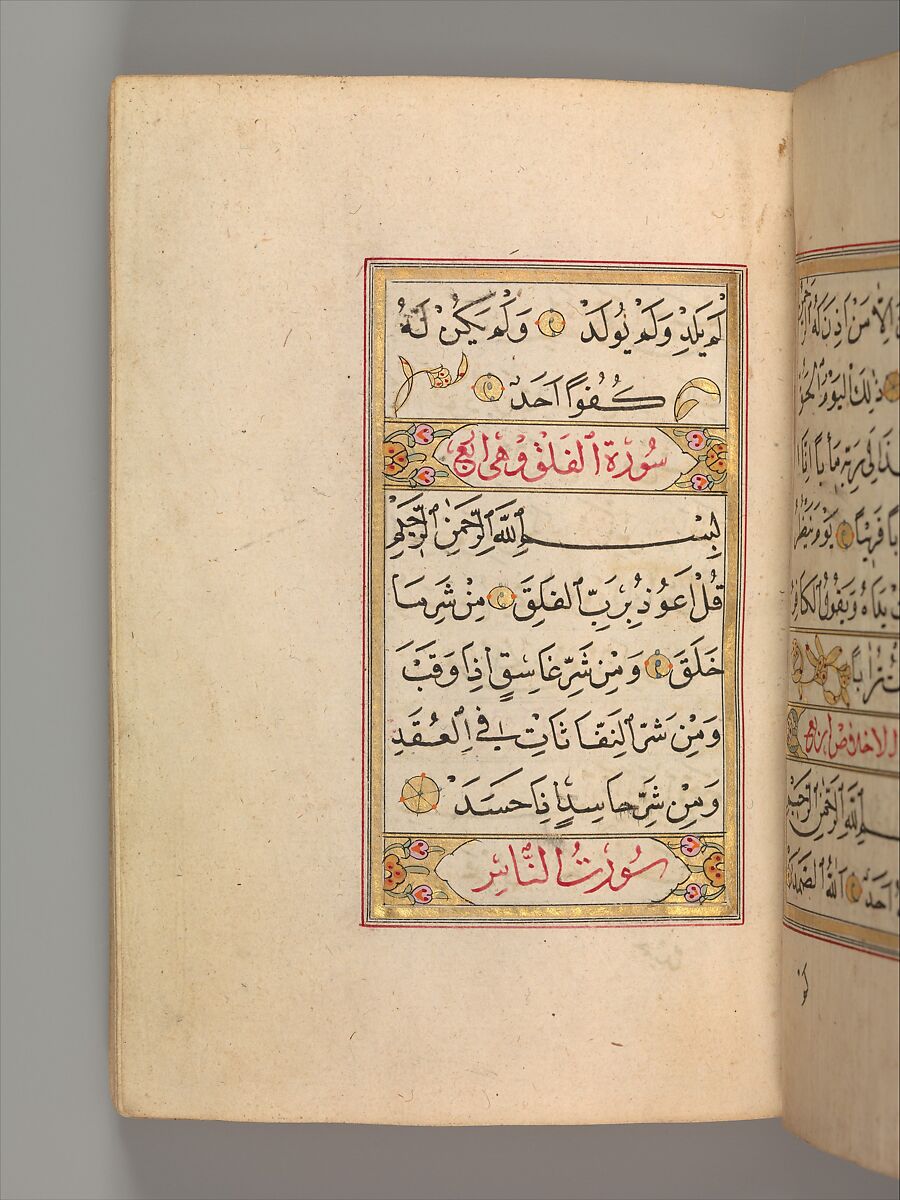 لَمْ يَلِدْ وَلَمْ يُولَدْ وَلَمْ يَكُنْ لَهُ
كُفُوًا اَحَدٌ
سُورَةُ الفَلَقْ وهى
بِسْمِ اللّٰهِ الرَّحْمٰنِ الرَّحٖيمِ
قُلْ اَعُوذُ بِرَبِّ الفَلَقِ مِنْ شَرِّ مَا
خَلَقَ وَمِنْ شَرِّ غَاسِقٍ اِذَا وَقَبَ
وَمِنْ شَرِّ النَّفَّاثَاتِ فِي الْعُقَدِ
وَمِنْ شَرِّ حَاسِدٍ اِذَا حَسَدَ
سُورَتُ النَّاسِ
اِلَّا مَنْ اَذِنَ لَهُ
ذٰلِكَ الْيَوْمُ الْحَقُّ
اِلٰى رَبِّهٖ مَاٰبًا اِنَّا
قَرٖيبًا يَوْمَ يَنْظُرُ
يَدَاهُ وَيَقُولُ الْكَافِرُ
تُرَابًا
الاخلاص
اللّٰهِ الرَّحْمٰنِ الرَّحٖيمِ
اَحَدٌ اَللّٰهُ الصَّمَدُ